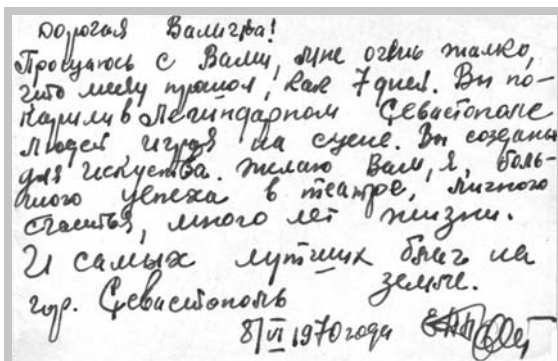 Дорогая Валигра!
Прощаюсь с Вами, мне очень жалко,
что месяц прошол, как 7 дней. Вы по-
карили в легиндарном Севастополе
людей игрдя на сцене. Вы созданы
для искуства. Желаю Вам, я, боль-
шого успеха в театре, личного
счастья, много лет жизни.
И самых лутших благ на
земле.
гор. Севастополь
8/VI 1970 года